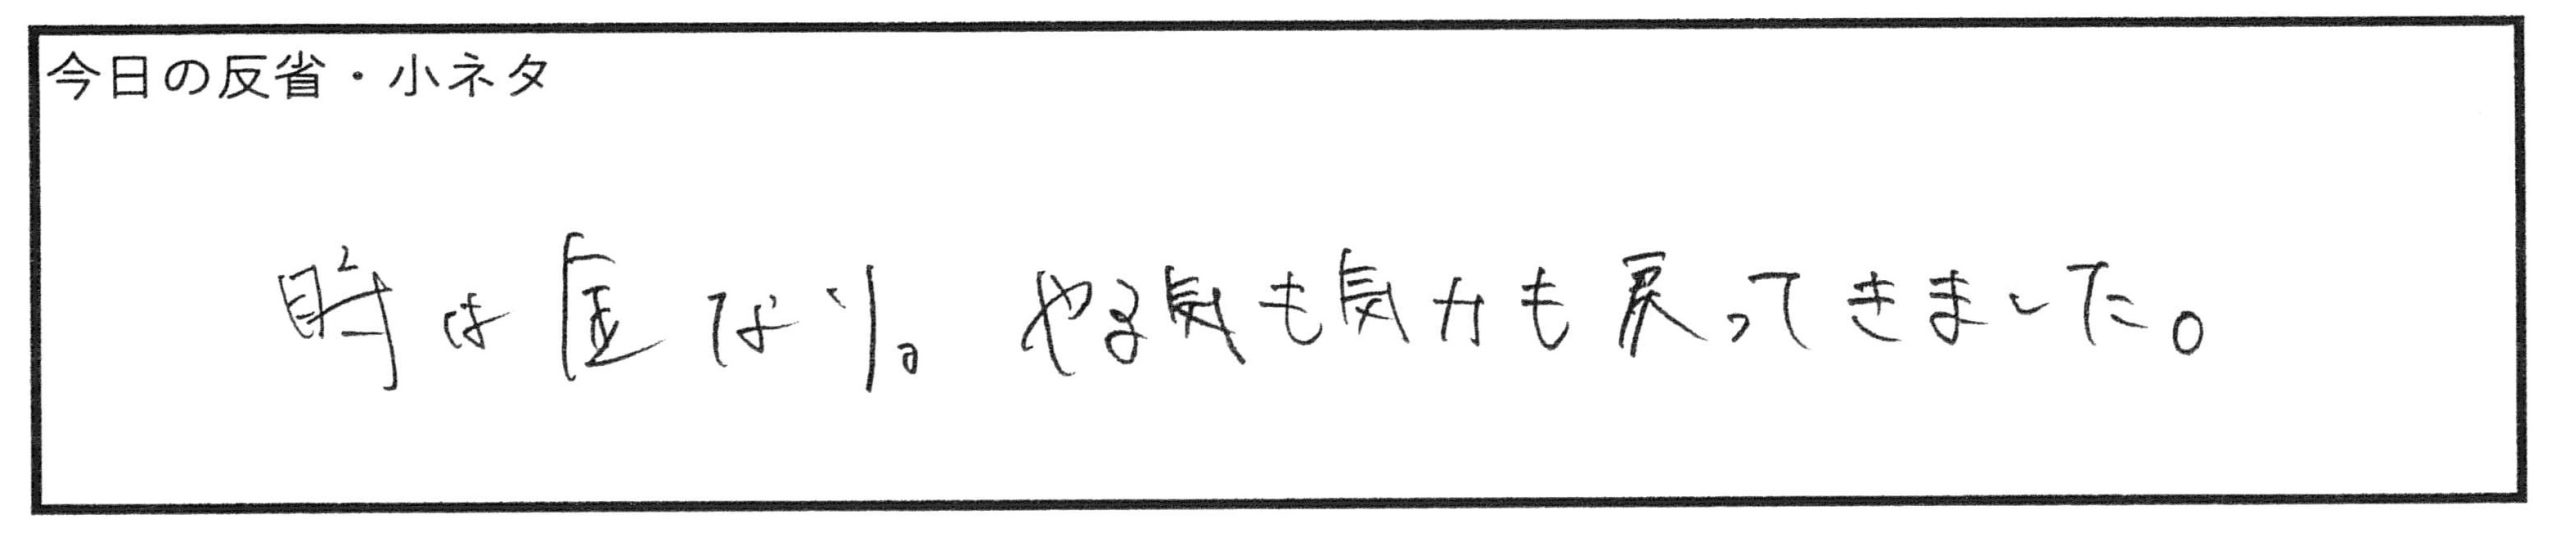 今日の反省・小ネタ
時は金なり。やる気も気力も戻ってきました。